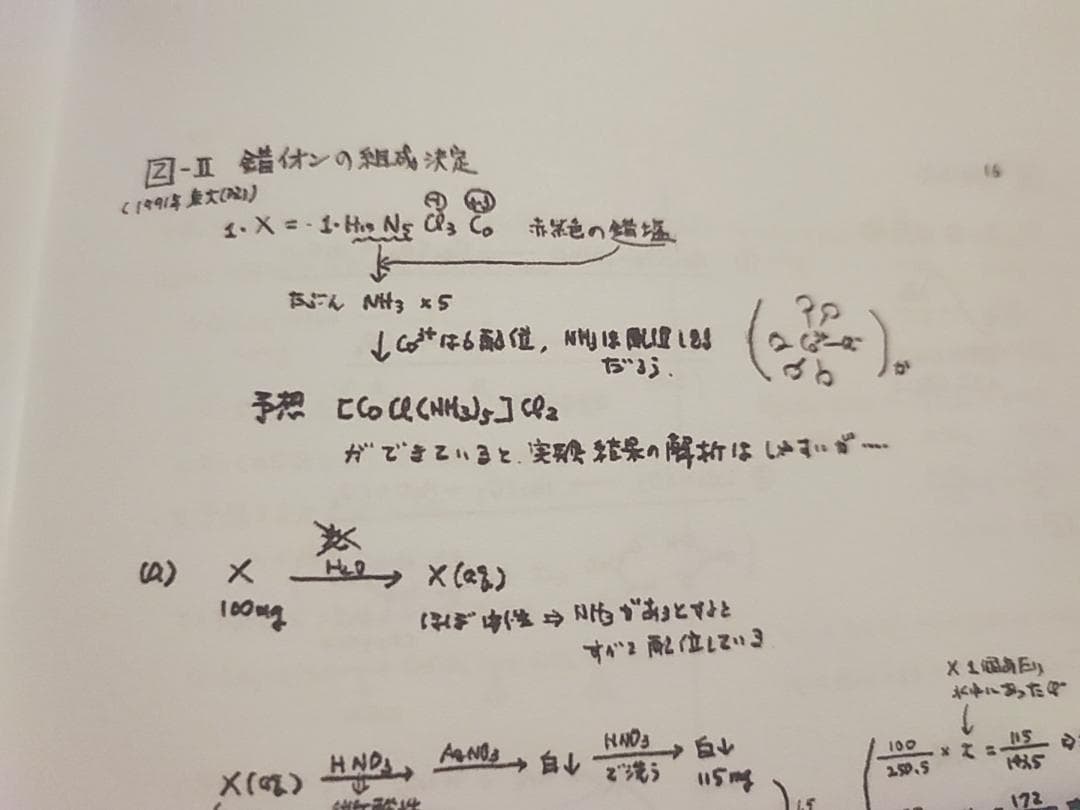 16
2-II 錯イオンの組成決定
(1991年 東大
1・X = 1・H₁₅ N₅ Cl₃ Co 赤紫色の錯塩
たぶん NH₃ ×5
Co³⁺は6配位, NH₃は配位しているだろう.
予想 [CoCl(NH₃)₅]Cl₂
ができていると、実験結果の解析はしやすいが……
(a) X H₂O → X(aq)
100mg ほぼ中性 ⇒ NH₃があるとすると
すべて配位している
X 1個あたり
水中にあったCl⁻
X(aq) HNO₃ → AgNO₃ → 白↓ HNO₃ で洗う → 白↓
115mg
100/250.5 × x = 115/143.5 ⇒
172